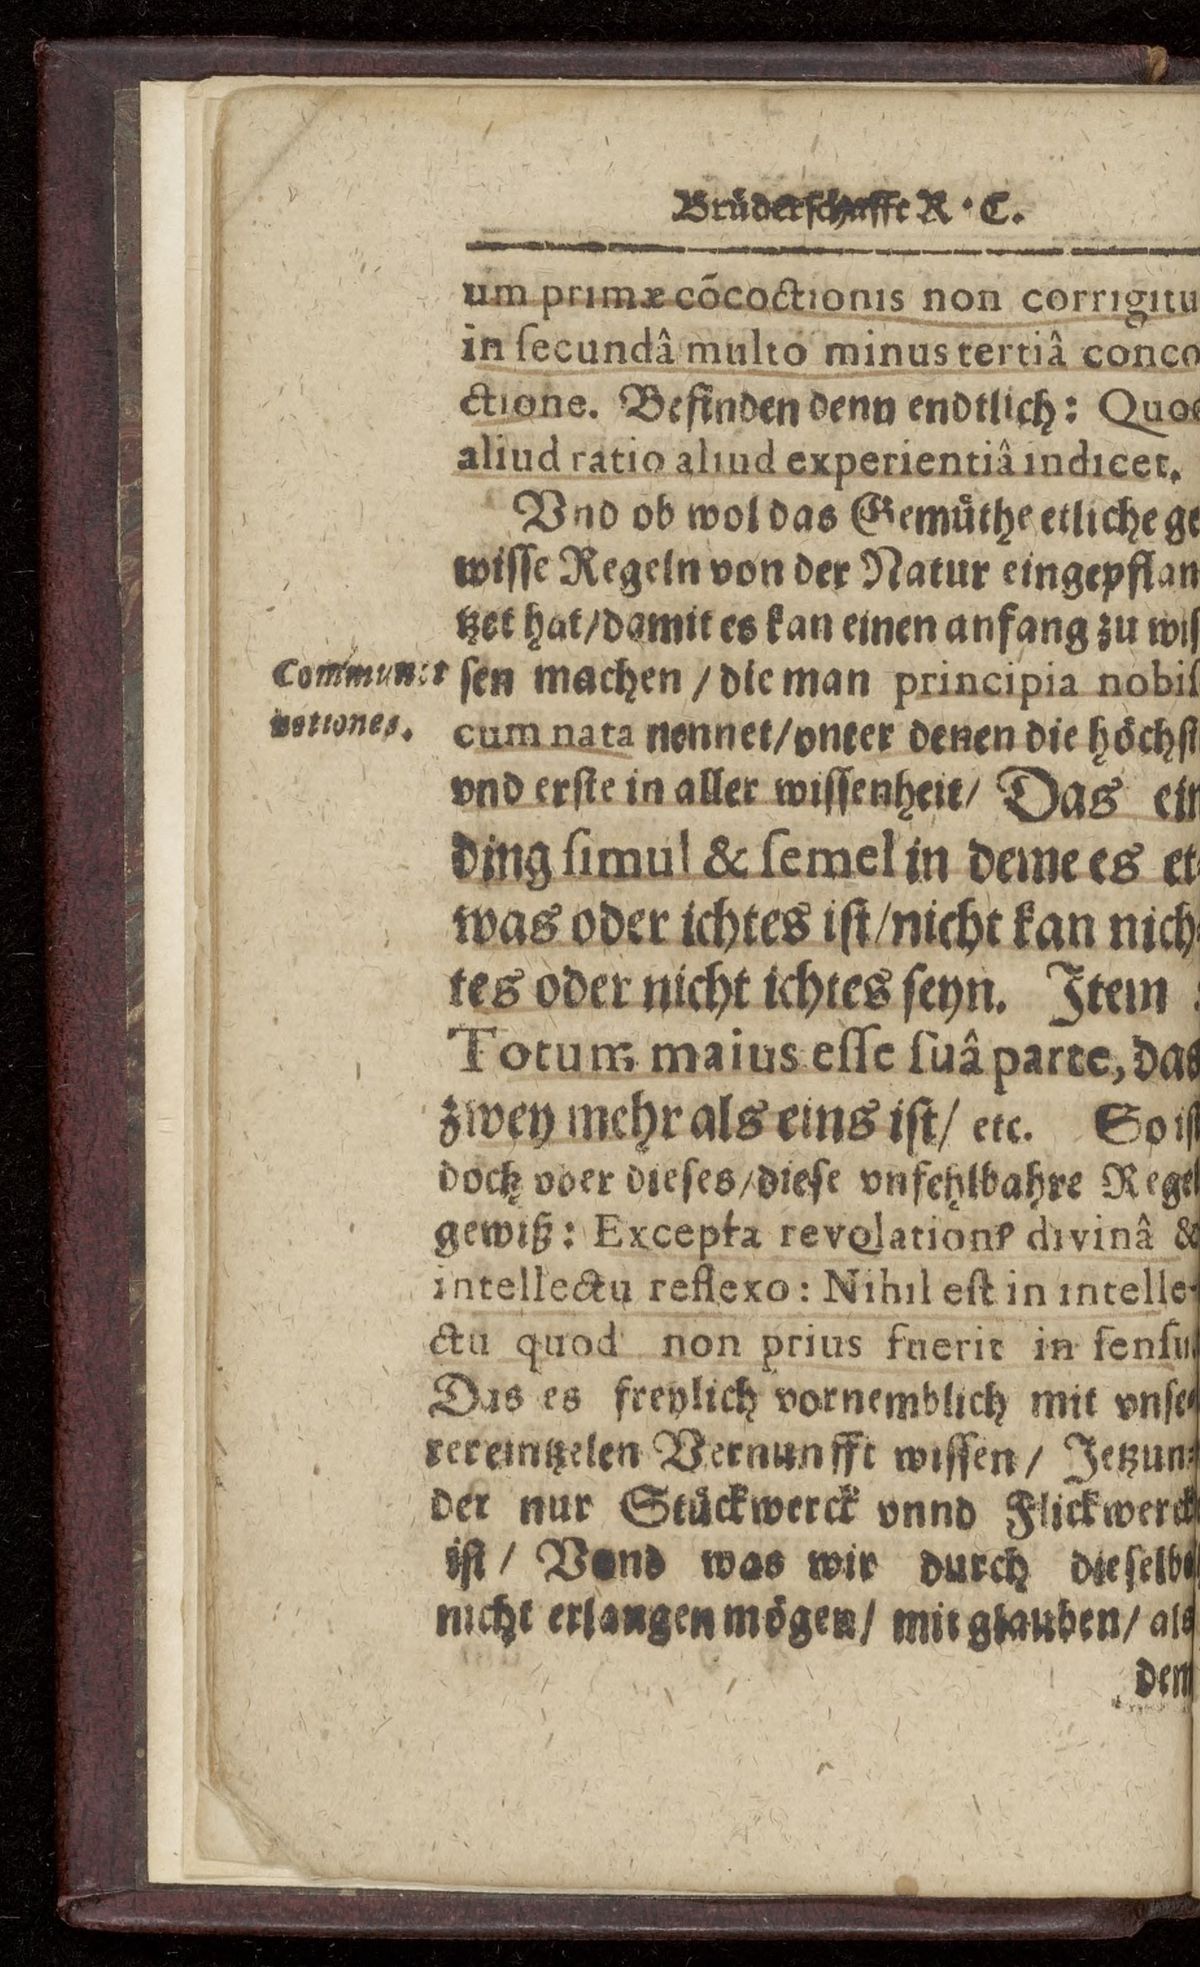 Brüderschafft R. C.
um primæ cõcoctionis non corrigitu
in ſecundâ multo minus tertiâ conco
ctione. Befinden denn endtlich: Quod
aliud ratio aliud experientiâ indicet.
Vnd ob wol das Gemüthe etliche ge
wiſſe Regeln von der Natur eingepflan
tzet hat/damit es kan einen anfang zu wiſ
Communes
notiones.
ſen machen / die man principia nobiſ
cum nata nennet/vnter denen die höchſt
vnd erſte in aller wiſſenheit/ Das ein
ding ſimul & ſemel in deme es et
was oder ichtes iſt/nicht kan nich
tes oder nicht ichtes ſeyn. Item :
Totum maius eſſe ſuâ parte, das
zwey mehr als eins iſt/ etc. So iſt
doch vber dieſes/dieſe vnfehlbahre Regel
gewiß: Excepta revolatione divinâ &
intellectu reflexo: Nihil eſt in intelle-
ctu quod non prius fuerit in ſenſu
Das es freylich vornemblich mit vnſe-
rer eintzelen Vernunfft wiſſen/ Jetzun-
der nur Stückwerck vnnd Flickwerck
iſt / Vnnd was wir durch dieſelbe
nicht erlangen mögen/ mit glauben/ als
dem